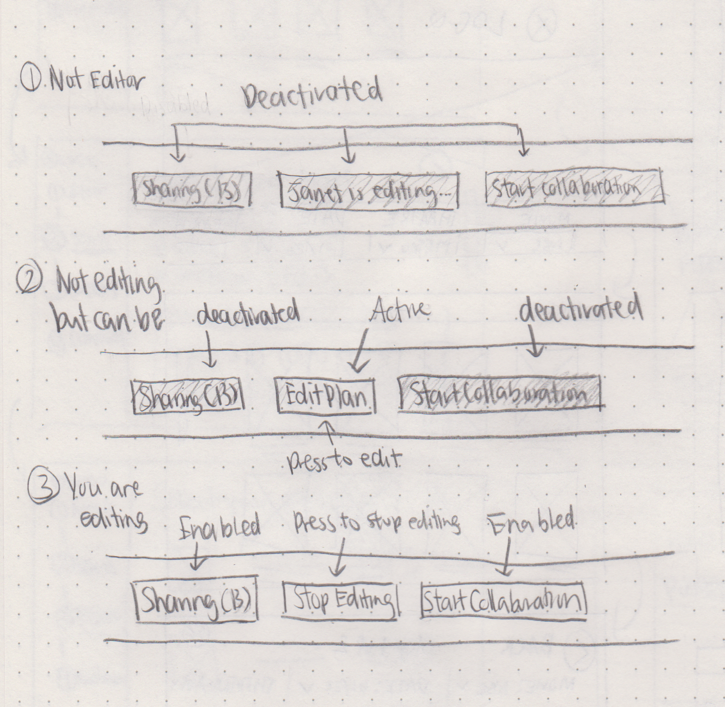 ① Not Editor
Deactivated
Sharing (13)
Janet is editing...
Start collaboration
② Not editing
but can be
deactivated
Active
deactivated
Sharing (13)
Edit Plan
Start Collaboration
press to edit
③ You are
editing
Enabled
Press to stop editing
Enabled
Sharing (13)
Stop Editing
Start Collaboration